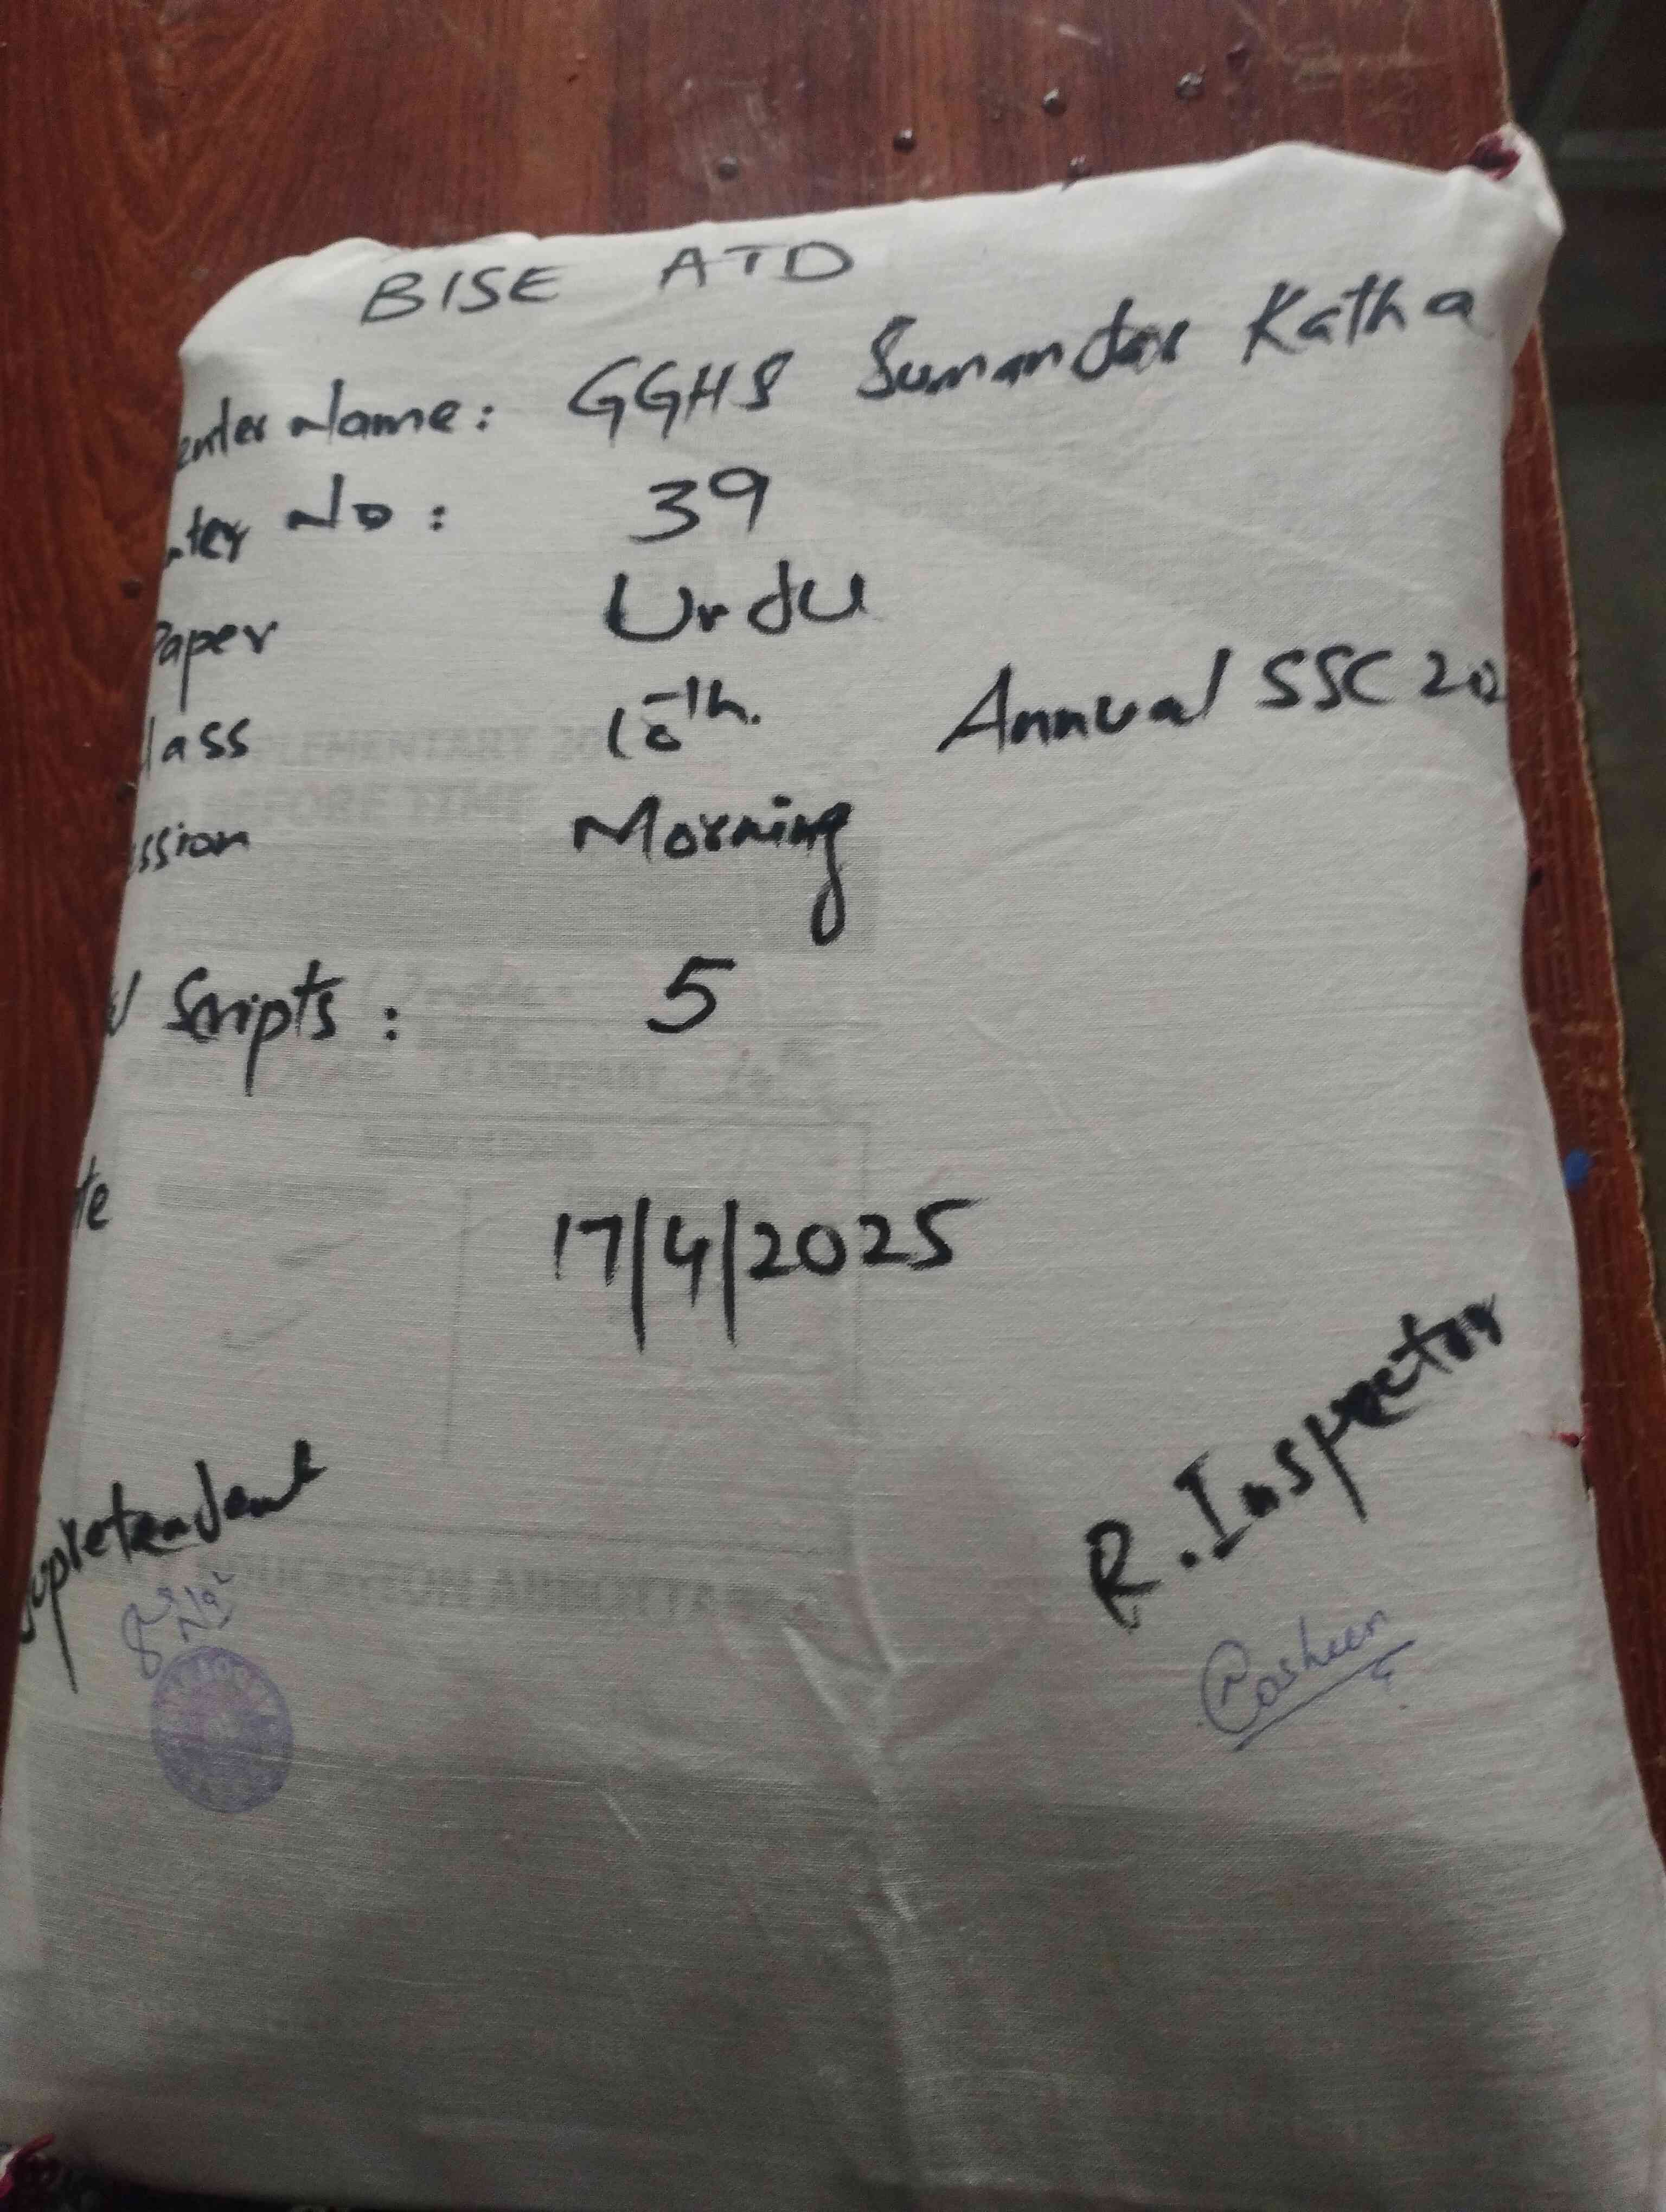 BISE ATD
enter Name: GGHS Sumandar Katha
nter No: 39
Paper Urdu
lass 10th. Annual SSC 20
ssion Morning
l Scripts: 5
te 17/4/2025
upretendent R. Inspector